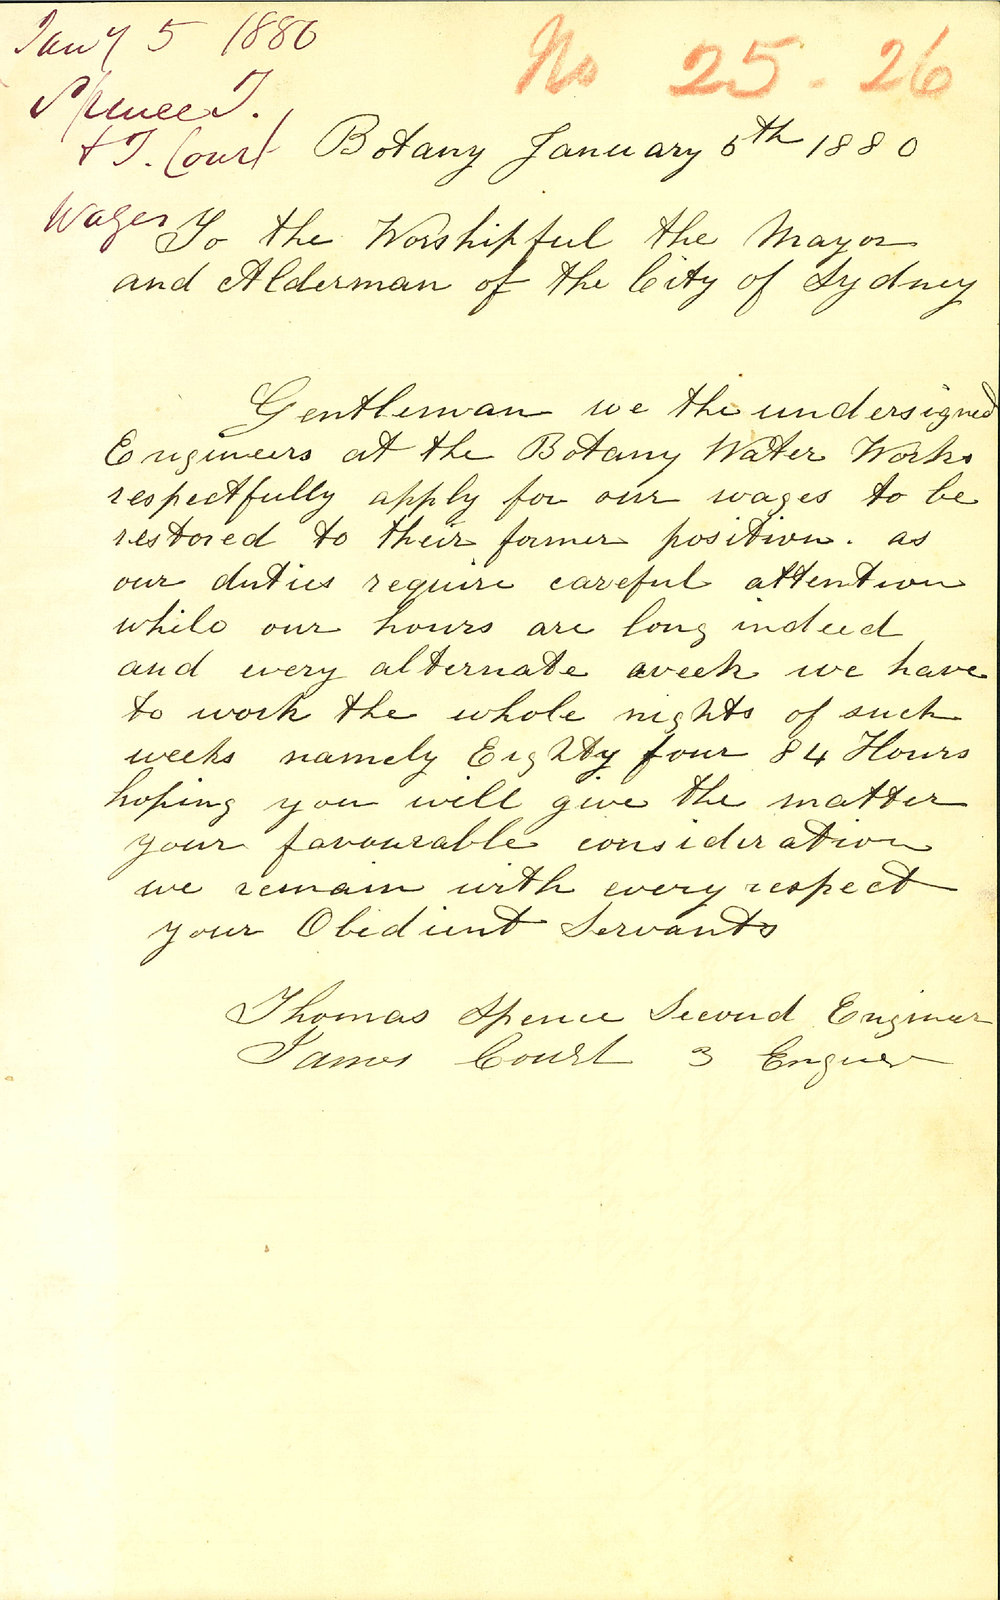 Jany 5 1880
No 25 - 26
Spence T.
+ J. Court
Botany January 5th 1880
Wages
To the Worshipful the Mayor
and Alderman of the City of Sydney
Gentleman we the undersigned
Engineers at the Botany Water Works
respectfully apply for our wages to be
restored to their former position. as
our duties require careful attention
while our hours are long indeed
and every alternate week we have
to work the whole nights of such
weeks namely Eighty four 84 Hours
hoping you will give the matter
your favourable consideration
we remain with every respect
your Obedient Servants
Thomas Spence Second Engineer
James Court 3 Engineer